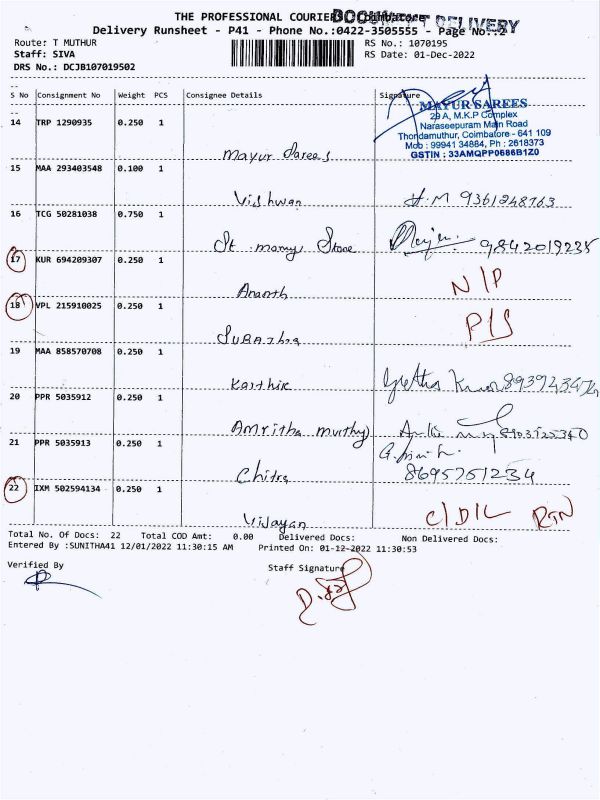 THE PROFESSIONAL COURIERS Coimbatore
DOCUMENT DELIVERY
Delivery Runsheet - P41 - Phone No.:0422-3505555 - Page No.:2
Route: T MUTHUR
RS No.: 1070195
Staff: SIVA
RS Date: 01-Dec-2022
DRS No.: DCJB107019502
S No Consignment No Weight PCS Consignee Details Signature
MAYUR SAREES
29 A, M.K.P Complex
Naraseepuram Main Road
Thondamuthur, Coimbatore - 641 109
Mob : 99941 34884, Ph : 2618373
GSTIN : 33AMQPP0686B1Z0
14 TRP 1290935 0.250 1
Mayur Sarees
15 MAA 293403548 0.100 1
Vishwan H.M 9361248763
16 TCG 50281038 0.750 1
St mary's Stone 9842019235
17 KUR 694209307 0.250 1
Ananth N/P
18 VPL 215910025 0.250 1
Subathra P/S
19 MAA 858570708 0.250 1
Karthik
20 PPR 5035912 0.250 1
Amritha murthy
21 PPR 5035913 0.250 1
Chitra 8695751234
22 IXM 502594134 0.250 1
Vijayan C/D/L RTN
Total No. Of Docs: 22 Total COD Amt: 0.00 Delivered Docs: Non Delivered Docs:
Entered By :SUNITHA41 12/01/2022 11:30:15 AM Printed On: 01-12-2022 11:30:53
Verified By Staff Signature